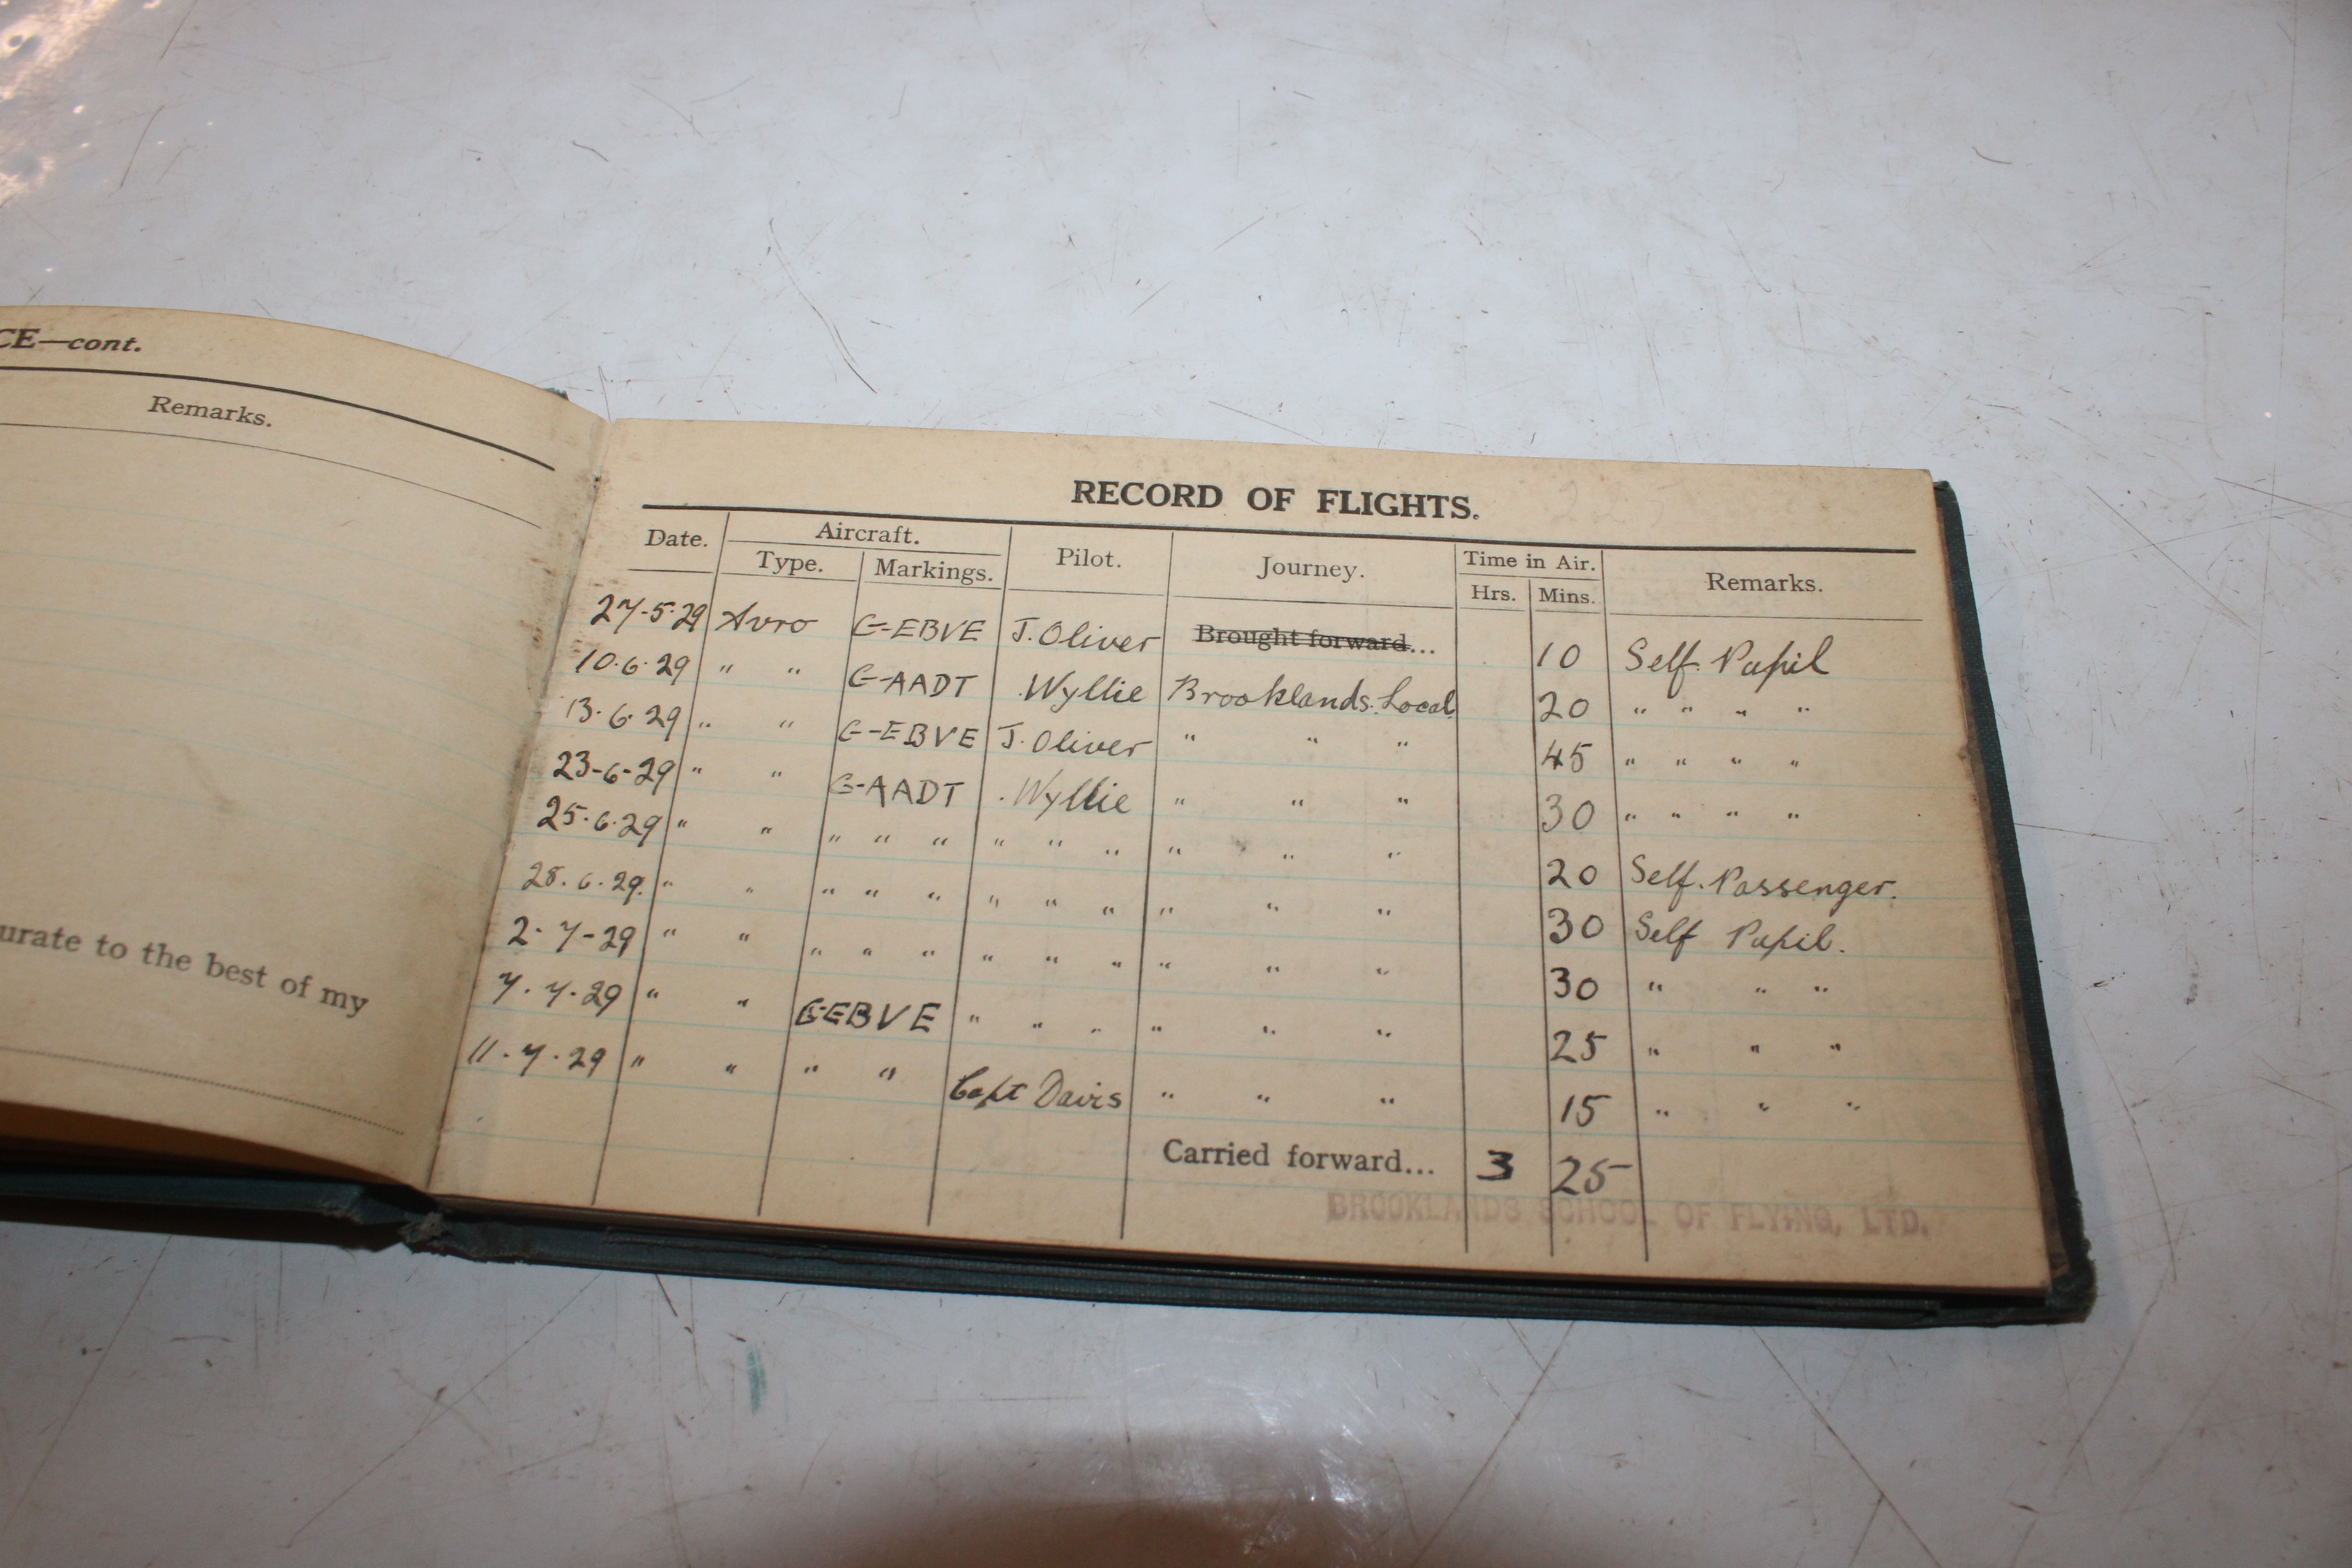 CE—cont.
Remarks.
urate to the best of my
RECORD OF FLIGHTS.
Date. Aircraft. Pilot. Journey. Time in Air. Remarks.
Type. Markings. Hrs. Mins.
Brought forward...
27-5-29 Avro G-EBVE J. Oliver 10 Self. Pupil
10.6.29 " " G-AADT .Wyllie Brooklands. Local 20 " " " "
13.6.29 " " G-EBVE J. Oliver " " " 45 " " " "
23-6-29 " " G-AADT .Wyllie " " " 30 " " " "
25.6.29 " " " " " " " " " " " 20 Self. Passenger.
28.6.29. " " " " " " " " " " " 30 Self Pupil.
2-7-29 " " " " " " " " " " " 30 " " "
7.7.29 " " G-EBVE " " " " " " 25 " " "
11.7.29 " " " " Capt Davis " " " 15 " " "
Carried forward... 3 25
BROOKLANDS SCHOOL OF FLYING, LTD.